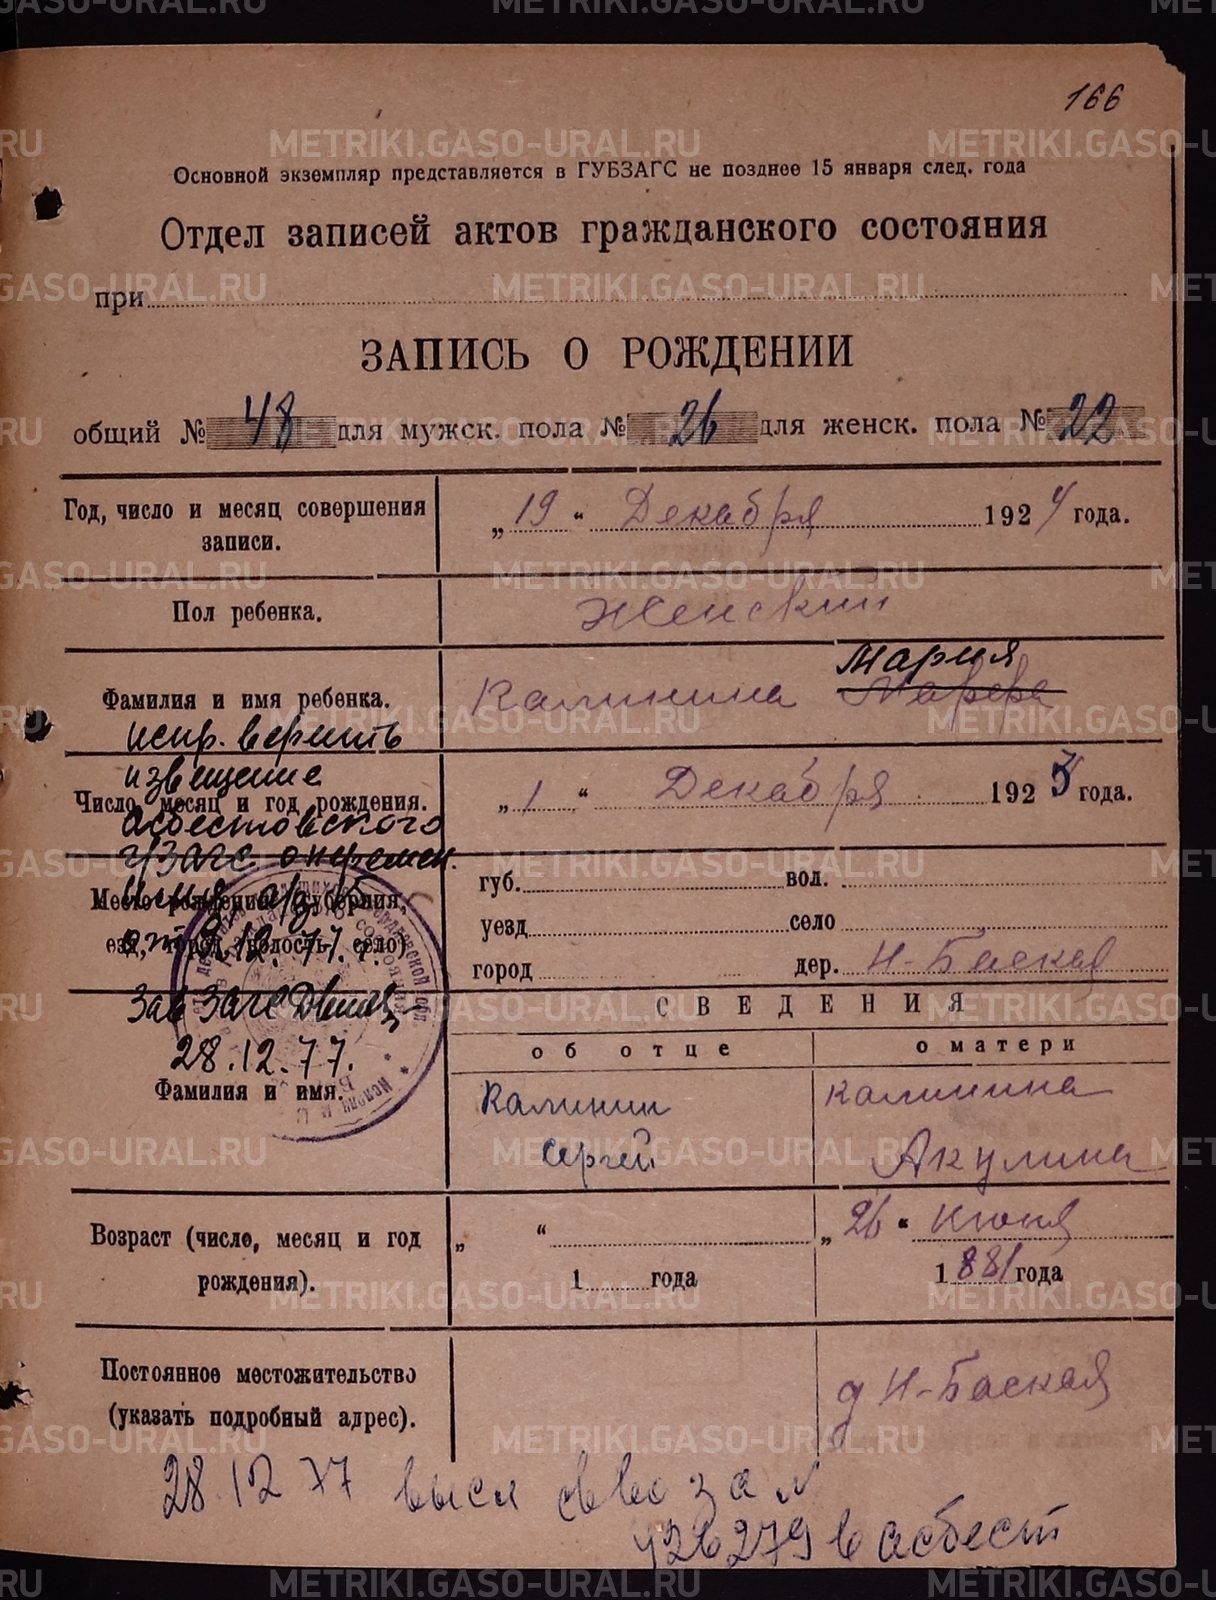 166
Основной экземпляр представляется в ГУБЗАГС не позднее 15 января след. года
Отдел записей актов гражданского состояния
при
ЗАПИСЬ О РОЖДЕНИИ
общий № 48 для мужск. пола № 26 для женск. пола № 22
Год, число и месяц совершения записи.
„19“ Декабря 1924 года.
Пол ребенка.
Женский
Фамилия и имя ребенка.
Мария
Калинина
испр. верить
извещение
асбестовского
г/загс о перемен.
имени
28.12.77 г.
Зав Загс
28.12.77.
Число, месяц и год рождения.
„1“ Декабря 192 года.
Место рождения (губерния, уезд, город, волость, село)
губ. вол.
уезд село
город дер. Н-Баская
СВЕДЕНИЯ
об отце о матери
Фамилия и имя.
Калинин Калинина
Сергей Акулина
Возраст (число, месяц и год рождения).
„ “ „26“ Июня
1 года 1881 года
Постоянное местожительство (указать подробный адрес).
д Н-Баская
28.12 77 высл св во за №
426279 в асбест
METRIKI.GASO-URAL.RU